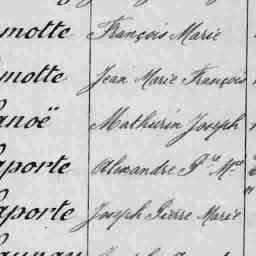 motte François Marie
motte Jean Marie François
anoë Mathurin Joseph
aporte Alexandre P.re M.ie
aporte Joseph Pierre Marie
aunay